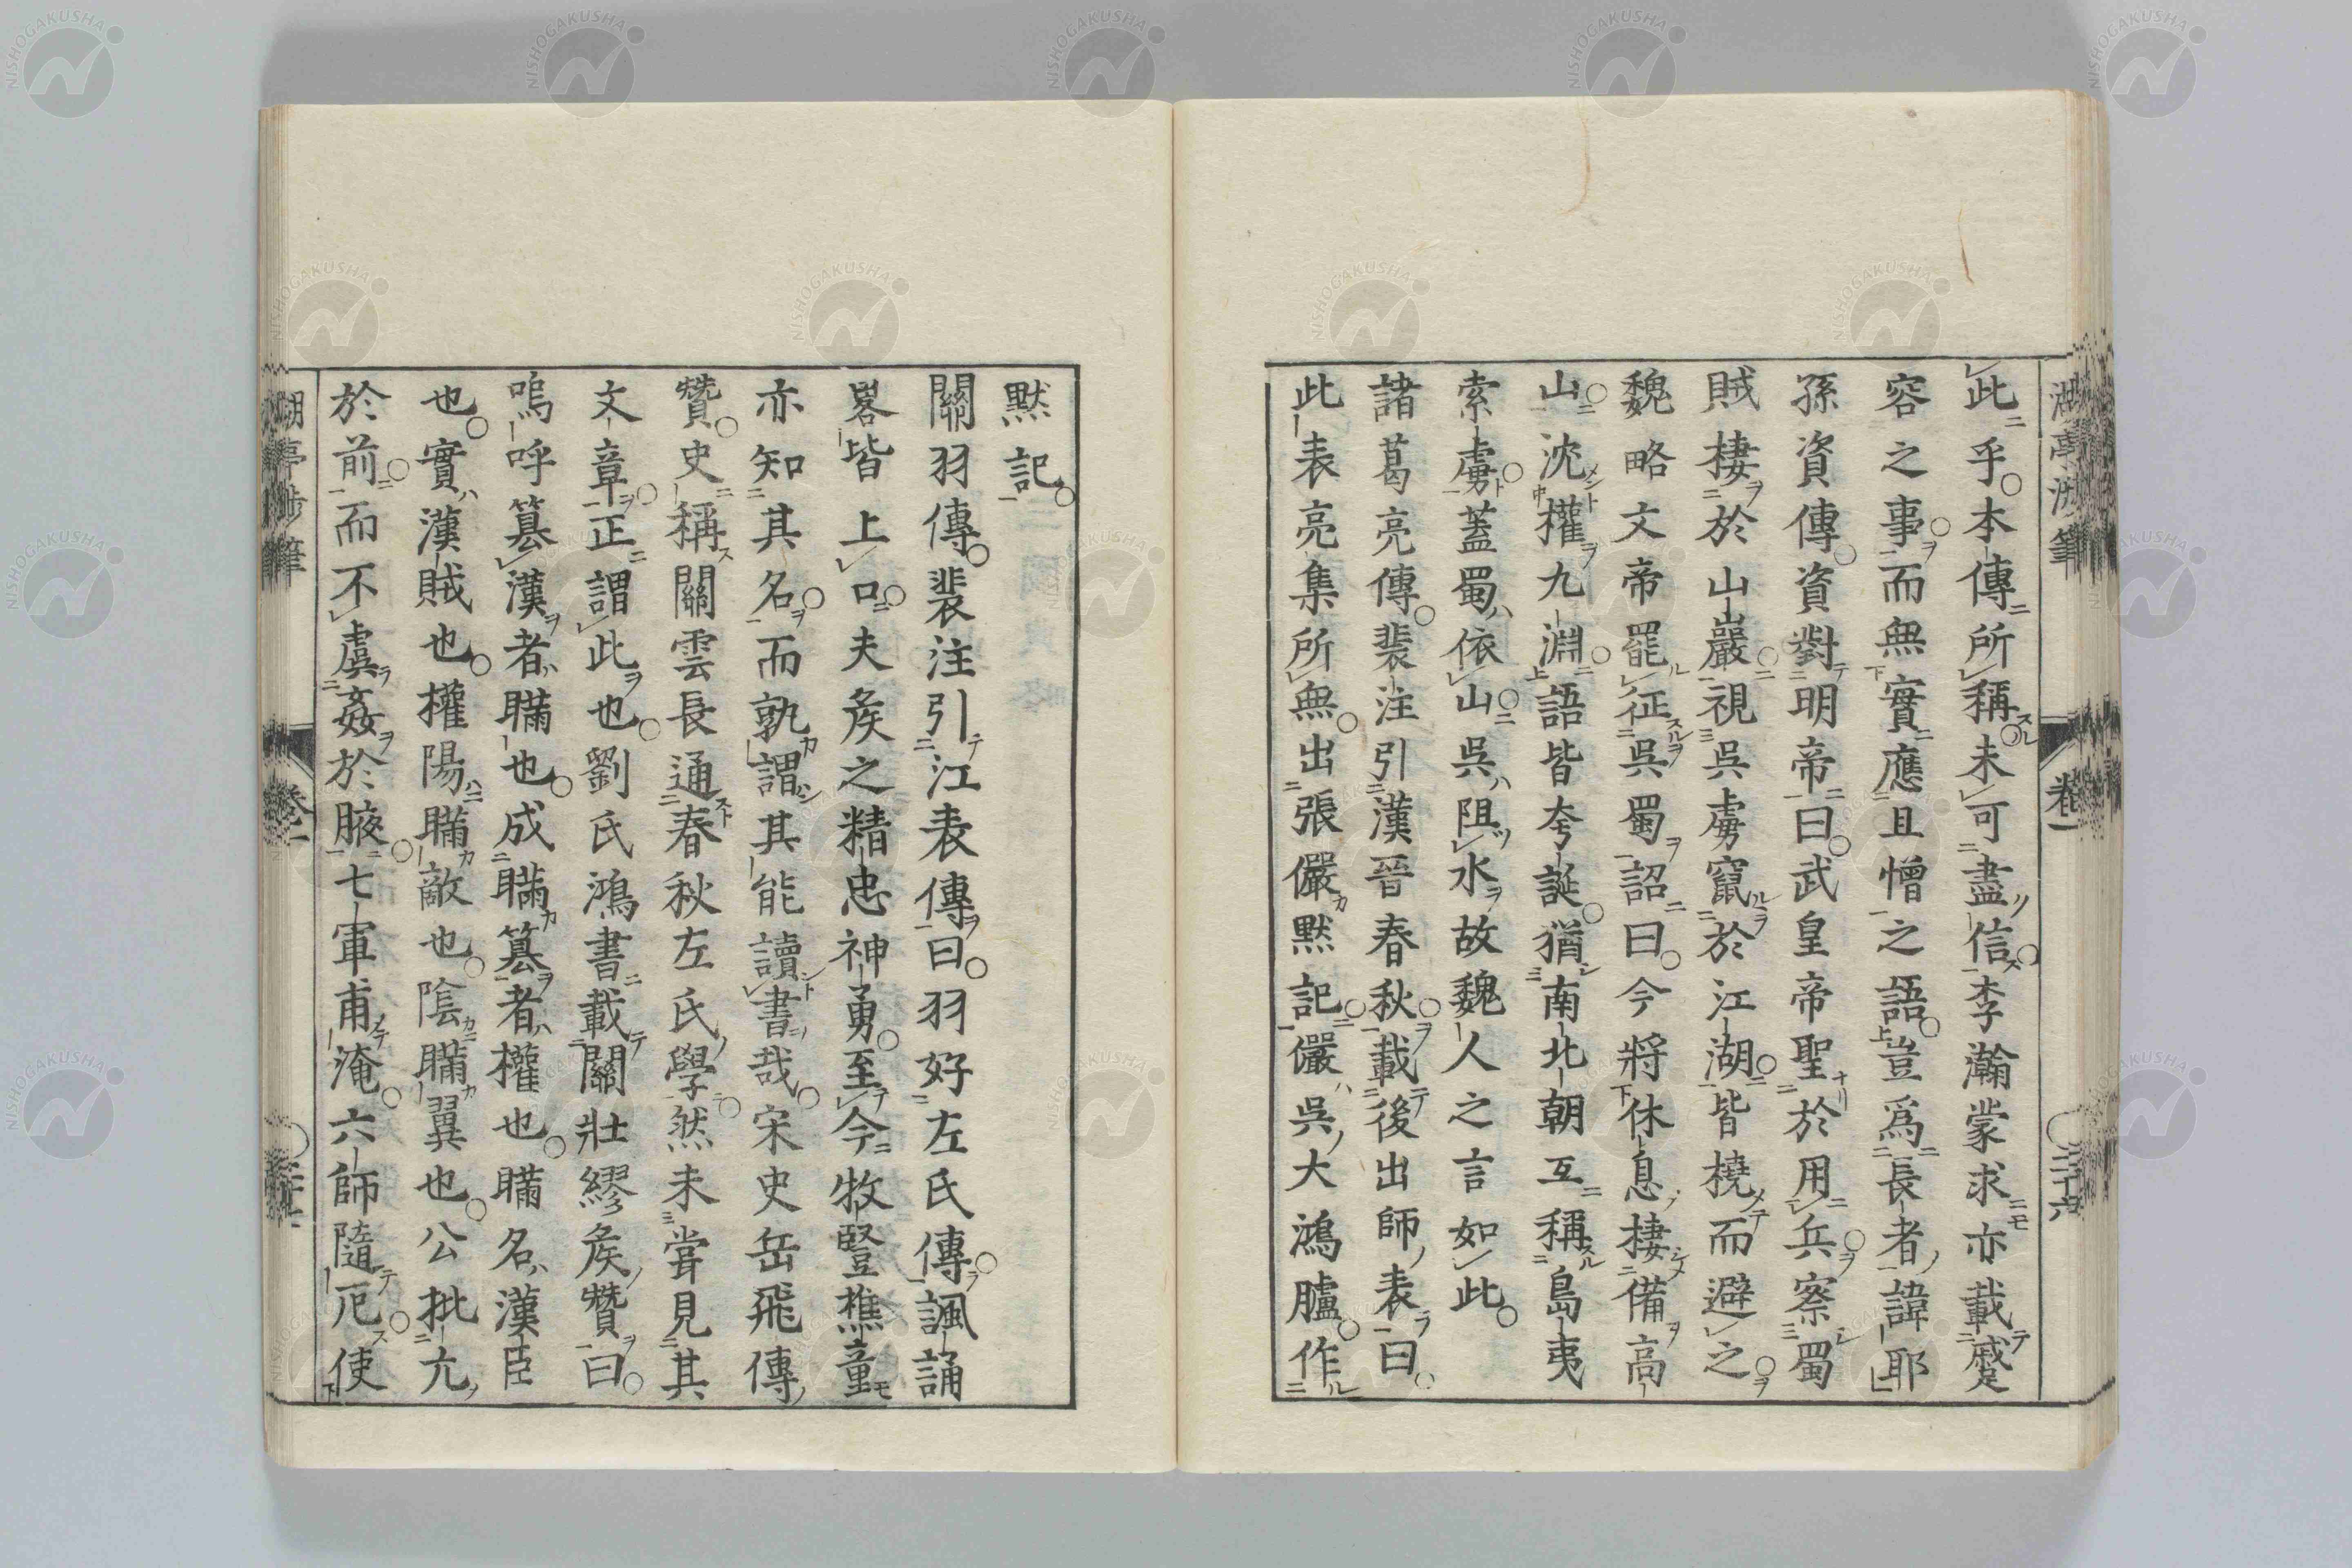 此乎本傳所稱未可盡信李瀚蒙求亦載蹙
容之事而無實應且憎之語豈爲長者諱耶
孫資傳資對明帝曰武皇帝聖於用兵察蜀
賊棲於山巖視吳虜竄於江湖皆橈而避之
魏略文帝罷征吳蜀詔曰今將休息棲備高
山沈權九淵語皆夸誕猶南北朝互稱島夷
索虜蓋蜀依山吳阻水故魏人之言如此
諸葛亮傳裴注引漢晉春秋載後出師表曰
此表亮集所無出張儼默記儼吳大鴻臚作
默記
關羽傳裴注引江表傳曰羽好左氏傳諷誦
畧皆上口夫矦之精忠神勇至今牧豎樵童
亦知其名而孰謂其能讀書哉宋史岳飛傳
贊史稱關雲長通春秋左氏學然未嘗見其
文章正謂此也劉氏鴻書載關壯繆矦贊曰
嗚呼篡漢者瞞也成瞞篡者權也瞞名漢臣
也實漢賊也權陽瞞敵也陰瞞翼也公批亢
於前而不虞姦於腋七軍甫淹六師隨厄使
卷一
卷一
二十六
NISHOGAKUSHA